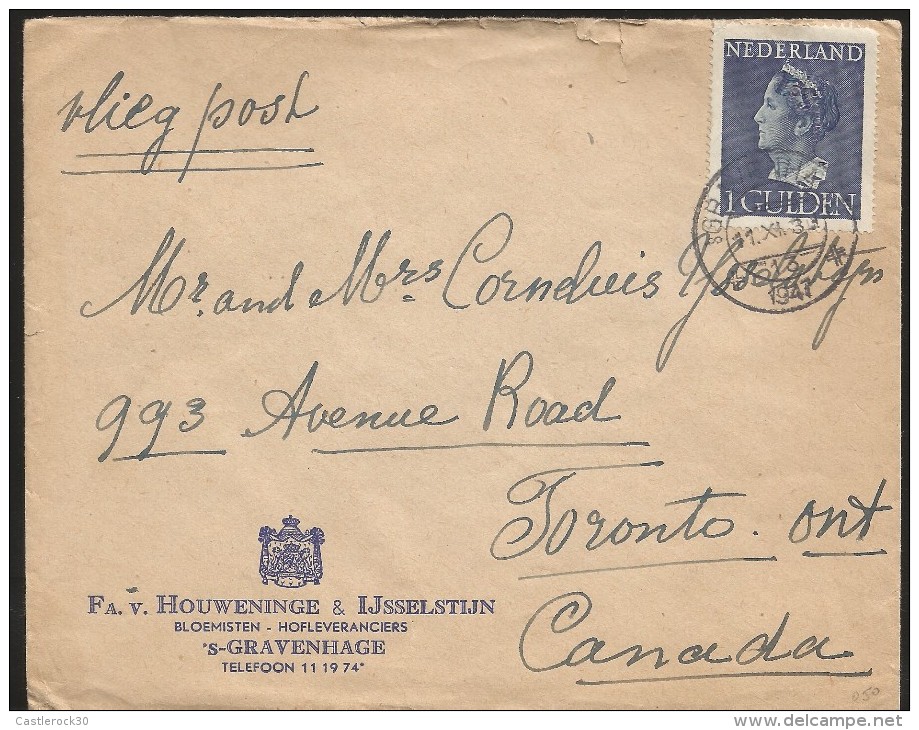 vlieg post
NEDERLAND
1 GULDEN
1947
Mr. and Mrs Corneluis IJsselstijn
993 Avenue Road
Toronto. ont
Canada
FA. V. HOUWENINGE & IJSSELSTIJN
BLOEMISTEN - HOFLEVERANCIERS
's-GRAVENHAGE
TELEFOON 11 19 74*
250
Castlerock30
delcampe.net